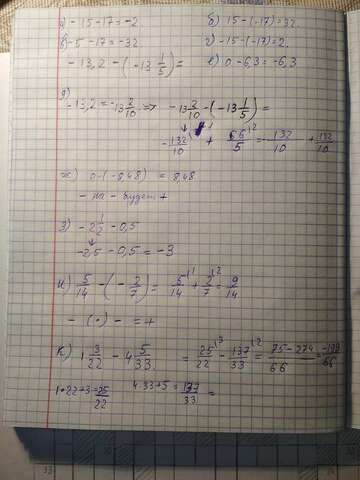 а) -15-17=-2 б) 15-(-17)=32
в) -5-17=-32 г) -15-(-17)=2.
-13,2-(-13 1/5)= е) 0-6,3=-6,3
д)
-13,2=-13 2/10 => -13 2/10-(-13 1/5)=
-132/10 + 66/5 = -132/10 + 132/10
ж) 0-(-8,48) = 8,48
- на - будет +
з) -2 1/2 -0,5
-2,5-0,5=-3
и) 5/14-(-2/7)= 5/14+2/7=9/14
- (•) - = +
к) 1 3/22 - 4 5/33 = 25/22 - 137/33 = 75-274/66 = -199/66
1•22+3=25/22 4•33+5=137/33 =